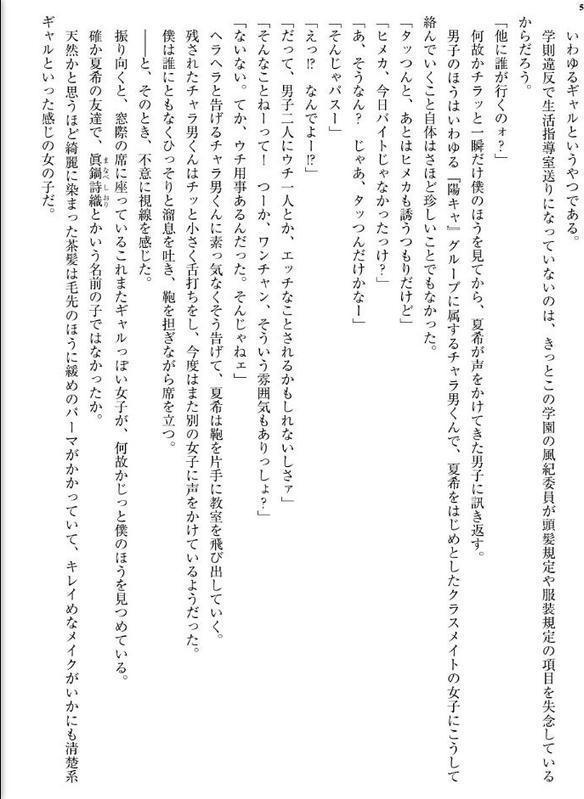 5
いわゆるギャルというやつである。
学則違反で生活指導室送りになっていないのは、きっとこの学園の風紀委員が頭髪規定や服装規定の項目を失念している
からだろう。
「他に誰が行くのォ？」
何故かチラッと一瞬だけ僕のほうを見てから、夏希が声をかけてきた男子に訊き返す。
男子のほうはいわゆる『陽キャ』グループに属するチャラ男くんで、夏希をはじめとしたクラスメイトの女子にこうして
絡んでいくこと自体はさほど珍しいことでもなかった。
「タッつんと、あとはヒメカも誘うつもりだけど」
「ヒメカ、今日バイトじゃなかったっけ？」
「あ、そうなん？　じゃあ、タッつんだけかなー」
「そんじゃパスー」
「えっ!?　なんでよー!?」
「だって、男子二人にウチ一人とか、エッチなことされるかもしれないしさァ」
「そんなことねーって！　つーか、ワンチャン、そういう雰囲気もありっしょ？」
「ないない。てか、ウチ用事あるんだった。そんじゃねェ」
ヘラヘラと告げるチャラ男くんに素っ気なくそう告げて、夏希は鞄を片手に教室を飛び出していく。
残されたチャラ男くんはチッと小さく舌打ちをし、今度はまた別の女子に声をかけているようだった。
僕は誰にともなくひっそりと溜息を吐き、鞄を担ぎながら席を立つ。
――と、そのとき、不意に視線を感じた。
振り向くと、窓際の席に座っているこれまたギャルっぽい女子が、何故かじっと僕のほうを見つめている。
確か夏希の友達で、眞鍋詩織とかいう名前の子ではなかったか。
まなべしおり
天然かと思うほど綺麗に染まった茶髪は毛先のほうに緩めのパーマがかかっていて、キレイめなメイクがいかにも清楚系
ギャルといった感じの女の子だ。